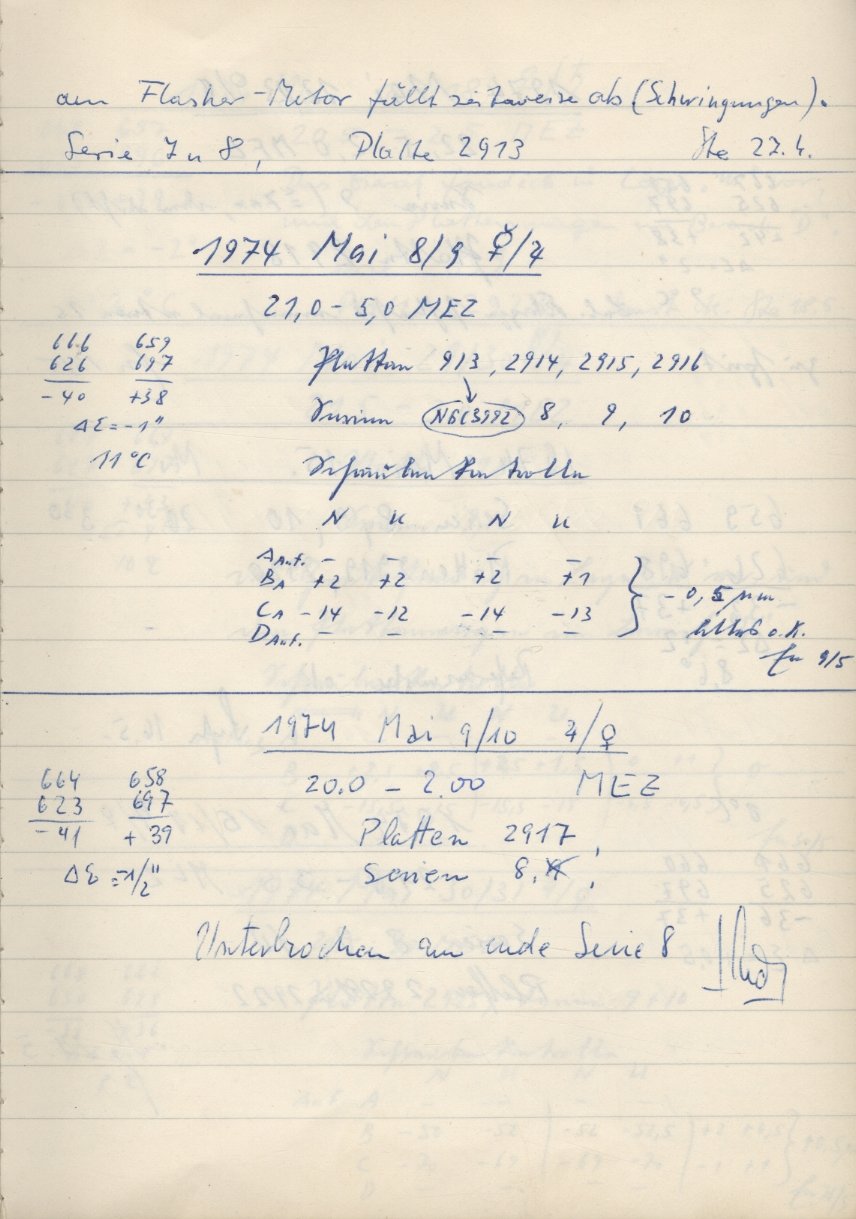 am Flasher-Motor fällt zeitweise ab (Schwingungen).
Serie 7 u 8, Platte 2913 Ste 27.4.
1974 Mai 8/9 ☿/♃
21,0 - 5,0 MEZ
666 659
626 697
-40 +38
ΔΣ = -1"
11°C
Platten 913, 2914, 2915, 2916
Serien NGC3992 8, 9, 10
Schrauben Kontrolle
N U N U
A Auf. - - - -
B1 +2 +2 +2 +1
C1 -14 -12 -14 -13
D Auf. - - - -
} -0,5 mm
o.K.
9/5
1974 Mai 9/10 ♃/♀
20.0 - 2.00 MEZ
664 658
623 697
-41 +39
ΔΣ = -1/2"
Platten 2917,
Serien 8.
Unterbrochen am ende Serie 8